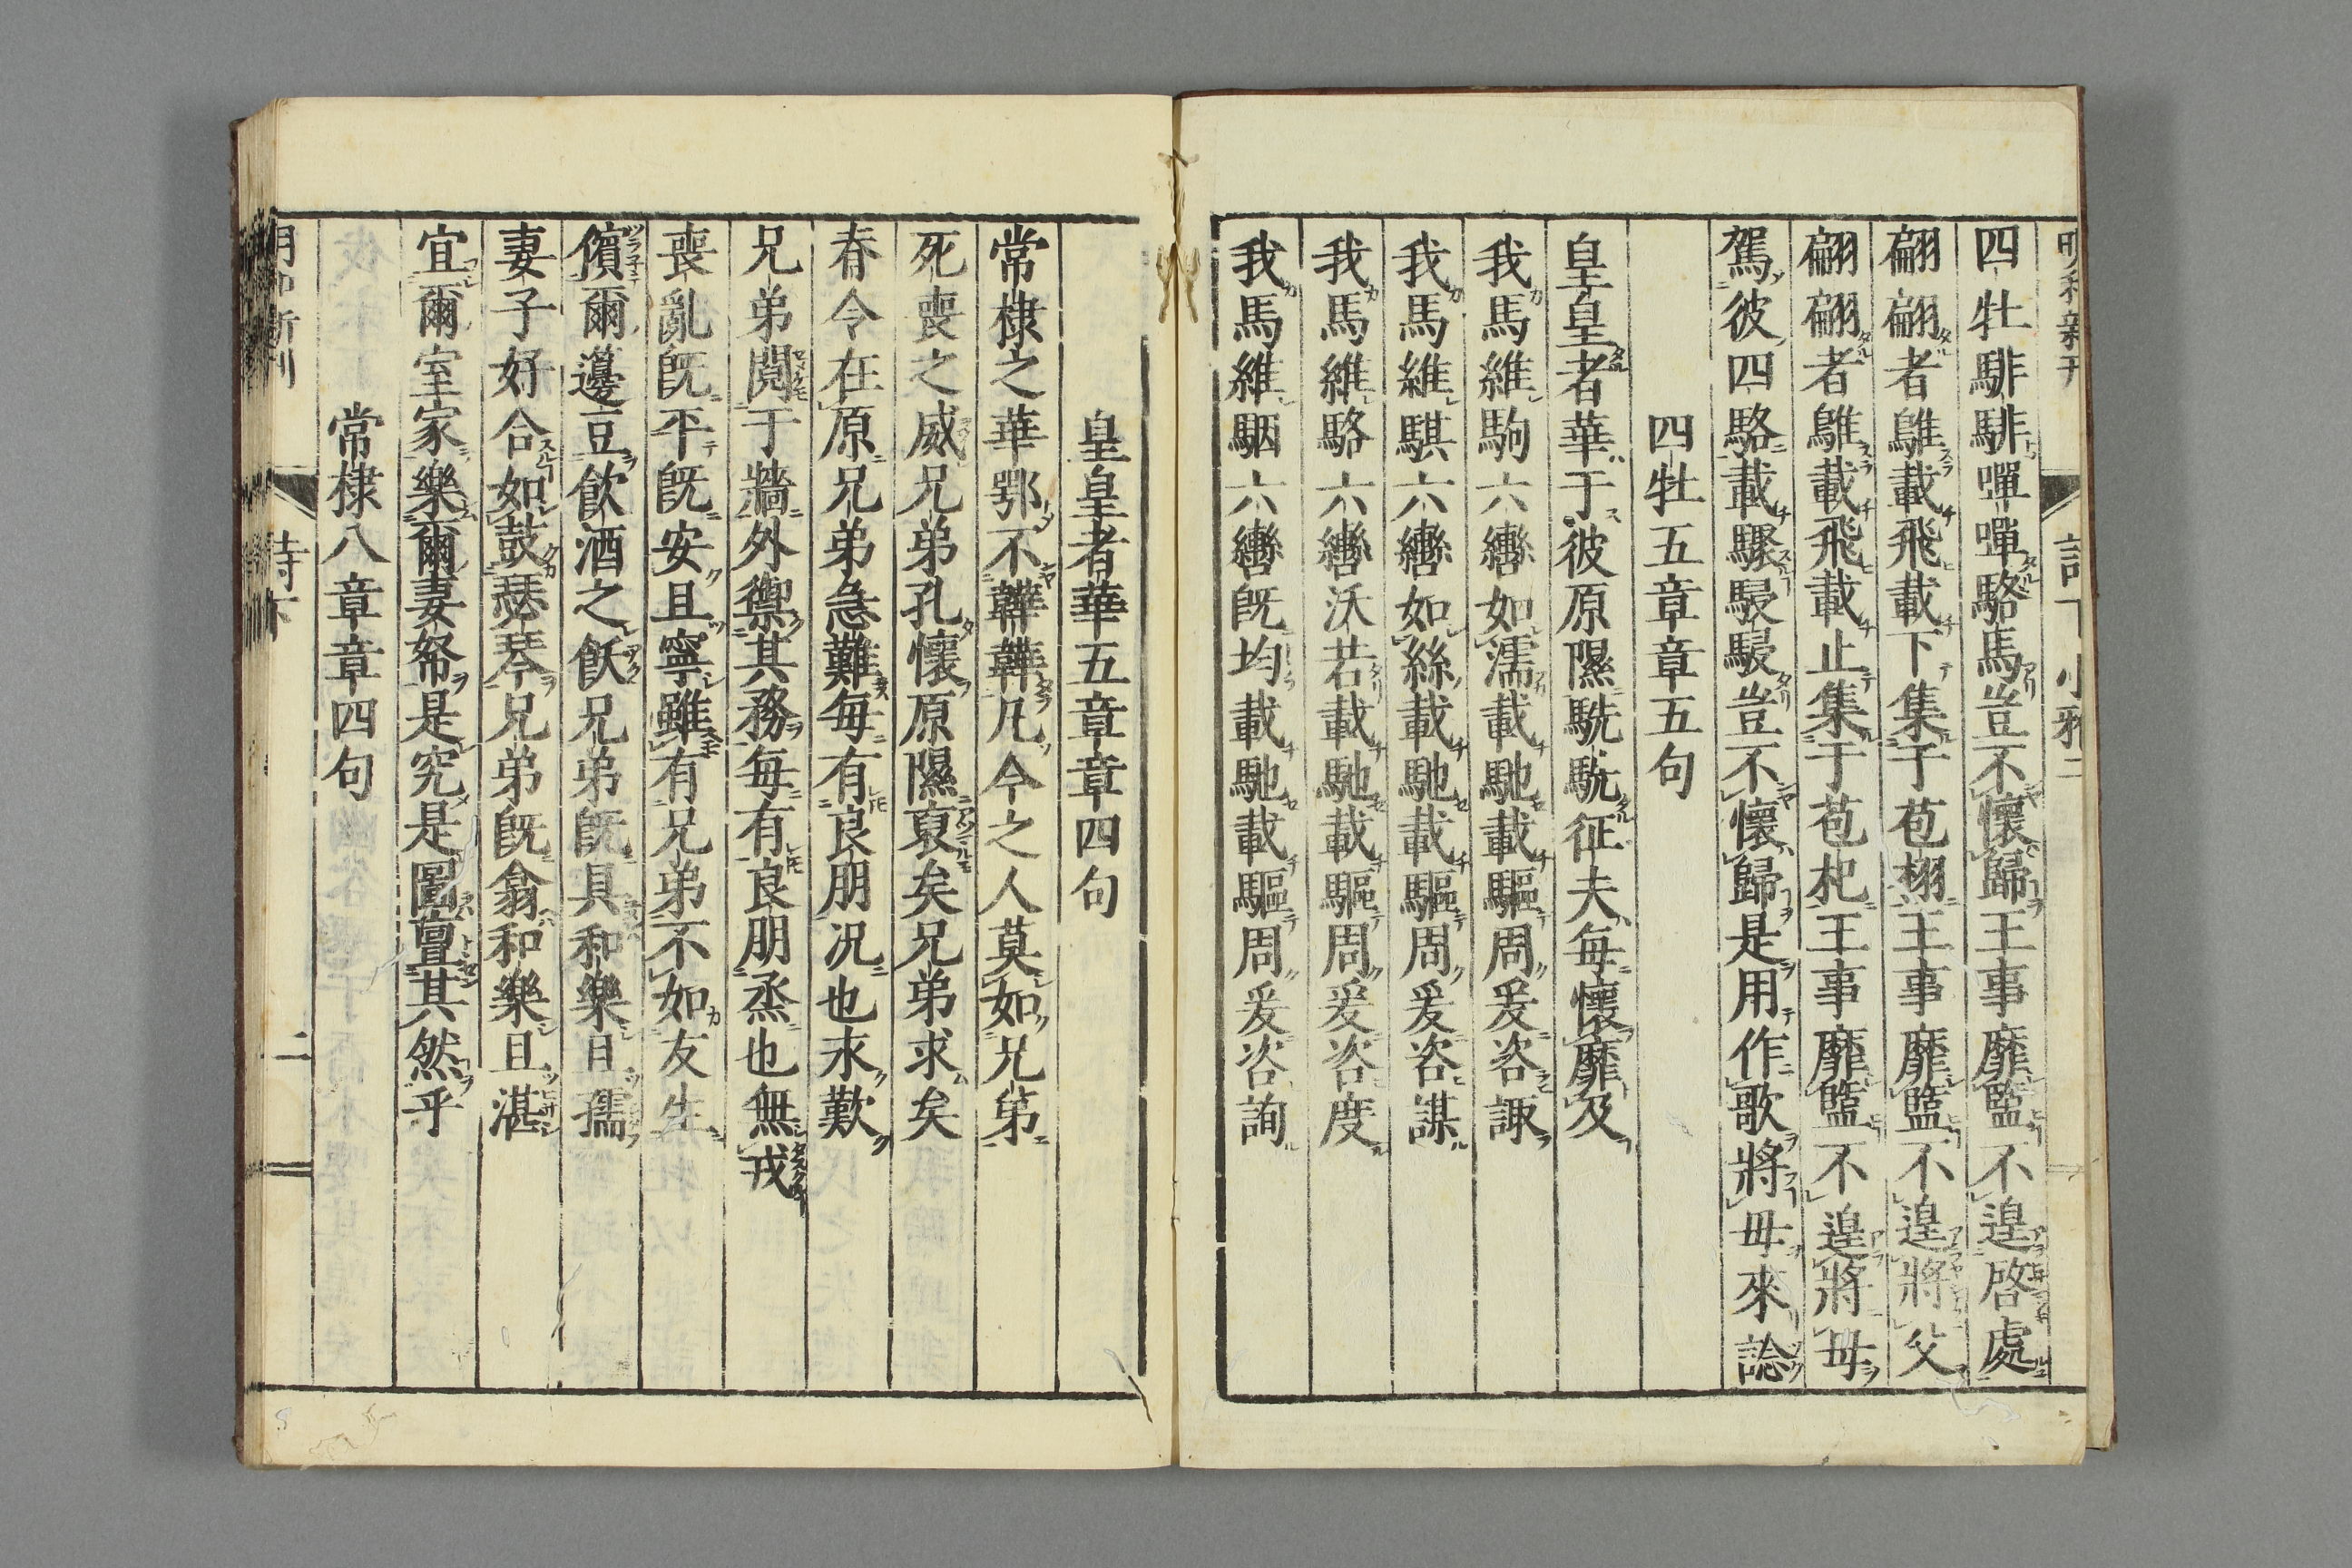 明和新刊 詩下 小雅二
四牡騑騑嘽嘽駱馬豈不懷歸王事靡盬不遑啓處
翩翩者鵻載飛載下集于苞栩王事靡盬不遑將父
翩翩者鵻載飛載止集于苞杞王事靡盬不遑將母
駕彼四駱載驟駸駸豈不懷歸是用作歌將母來諗
四牡五章章五句
皇皇者華于彼原隰駪駪征夫每懷靡及
我馬維駒六轡如濡載馳載驅周爰咨諏
我馬維騏六轡如絲載馳載驅周爰咨謀
我馬維駱六轡沃若載馳載驅周爰咨度
我馬維駰六轡既均載馳載驅周爰咨詢
皇皇者華五章章四句
常棣之華鄂不韡韡凡今之人莫如兄弟
死喪之威兄弟孔懷原隰裒矣兄弟求矣
脊令在原兄弟急難每有良朋况也永歎
兄弟鬩于牆外禦其務每有良朋烝也無戎
喪亂既平既安且寧雖有兄弟不如友生
儐爾籩豆飲酒之飫兄弟既具和樂且孺
妻子好合如鼓瑟琴兄弟既翕和樂且湛
宜爾室家樂爾妻帑是究是圖亶其然乎
常棣八章章四句
明和新刊 詩下 二